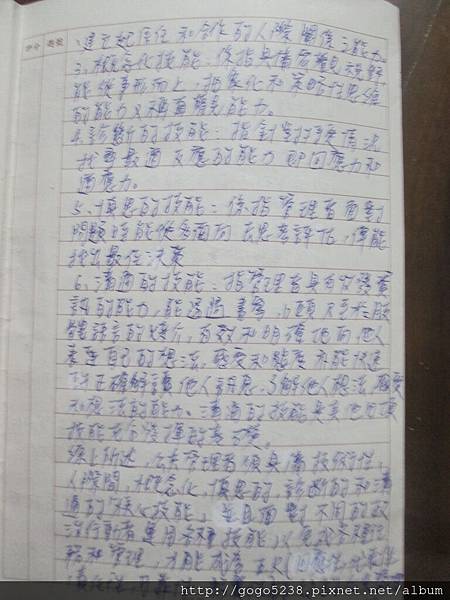 建立起信任和合作的人際關係之能力。
3.概念化技能:係指具備宏觀視野
能從事形而上、抽象化和策略性思維
的能力又稱直觀能力。
4.診斷的技能:指針對特定情況
找尋最適反應的能力 即回應力和
適應力。
5.慎思的技能:係指管理者面對
問題時能從多面向去思考評估,俾能
找出最佳決策
6.溝通的技能:指管理者具有發
訊的能力,能透過書寫、口頭及至於肢
體語言的媒介,有效和明確地向他人
表達自己的想法、感受和態度 亦能快速
正確解讀他人訊息、了解他人想法、感受
和想法的能力。溝通的技能是其他五項
技能充分發揮的
綜上所述,公共管理者須具備技術性、
人際間、概念化、慎思的、診斷的和溝
通的核心技能,並且面對不同的政
治行動者運用各種技能,以免
和管理,才能
http://gogo5238.pixnet.net/album